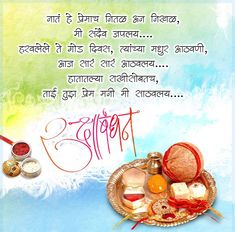 नातं हे प्रेमाचं नितळ अन निखळ,
मी सदैव जपलय....
हरवलेले ते गोड दिवस, त्यांच्या मधुर आठवणी,
आज सारं सारं आठवलय....
हातातल्या राखीसोबतच,
ताई तुझं प्रेम मनी मी साठवलय....
रक्षाबंधन